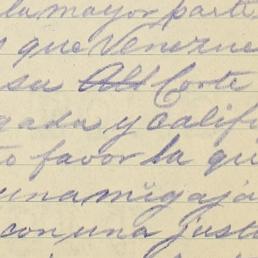 la mayor parte
que Venezue
su Alt Corte
gada y calif
to favor la qu
una migaja
con una just